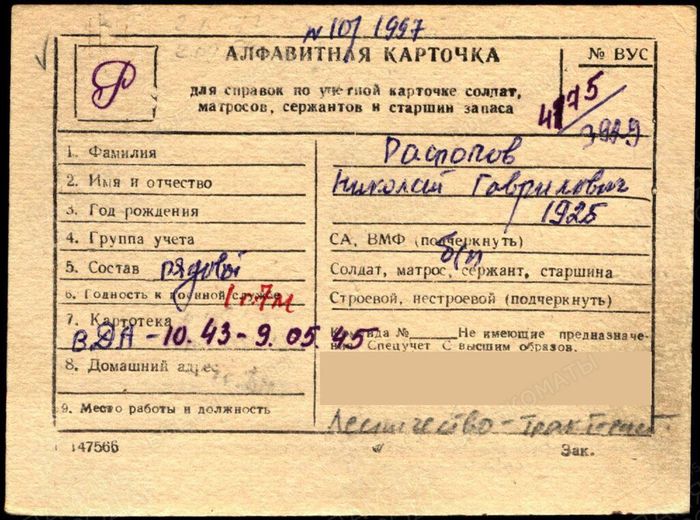 N 10/1997
АЛФАВИТНАЯ КАРТОЧКА
№ ВУС
Р
для справок по учетной карточке солдат,
матросов, сержантов и старшин запаса
4175
3929
1. Фамилия
Распопов
2. Имя и отчество
Николай Гаврилович
3. Год рождения
1925
4. Группа учета
СА, ВМФ (подчеркнуть)
б/п
5. Состав рядовой
Солдат, матрос, сержант, старшина
6. Годность к военной службе
Строевой, нестроевой (подчеркнуть)
7. Картотека
ВДА - 10.43 - 9.05.45
Команда №______Не имеющие предназначе-
ния Спецучет С высшим образов.
8. Домашний адрес
9. Место работы и должность
Лесничество - тракторист
147566
Зак.